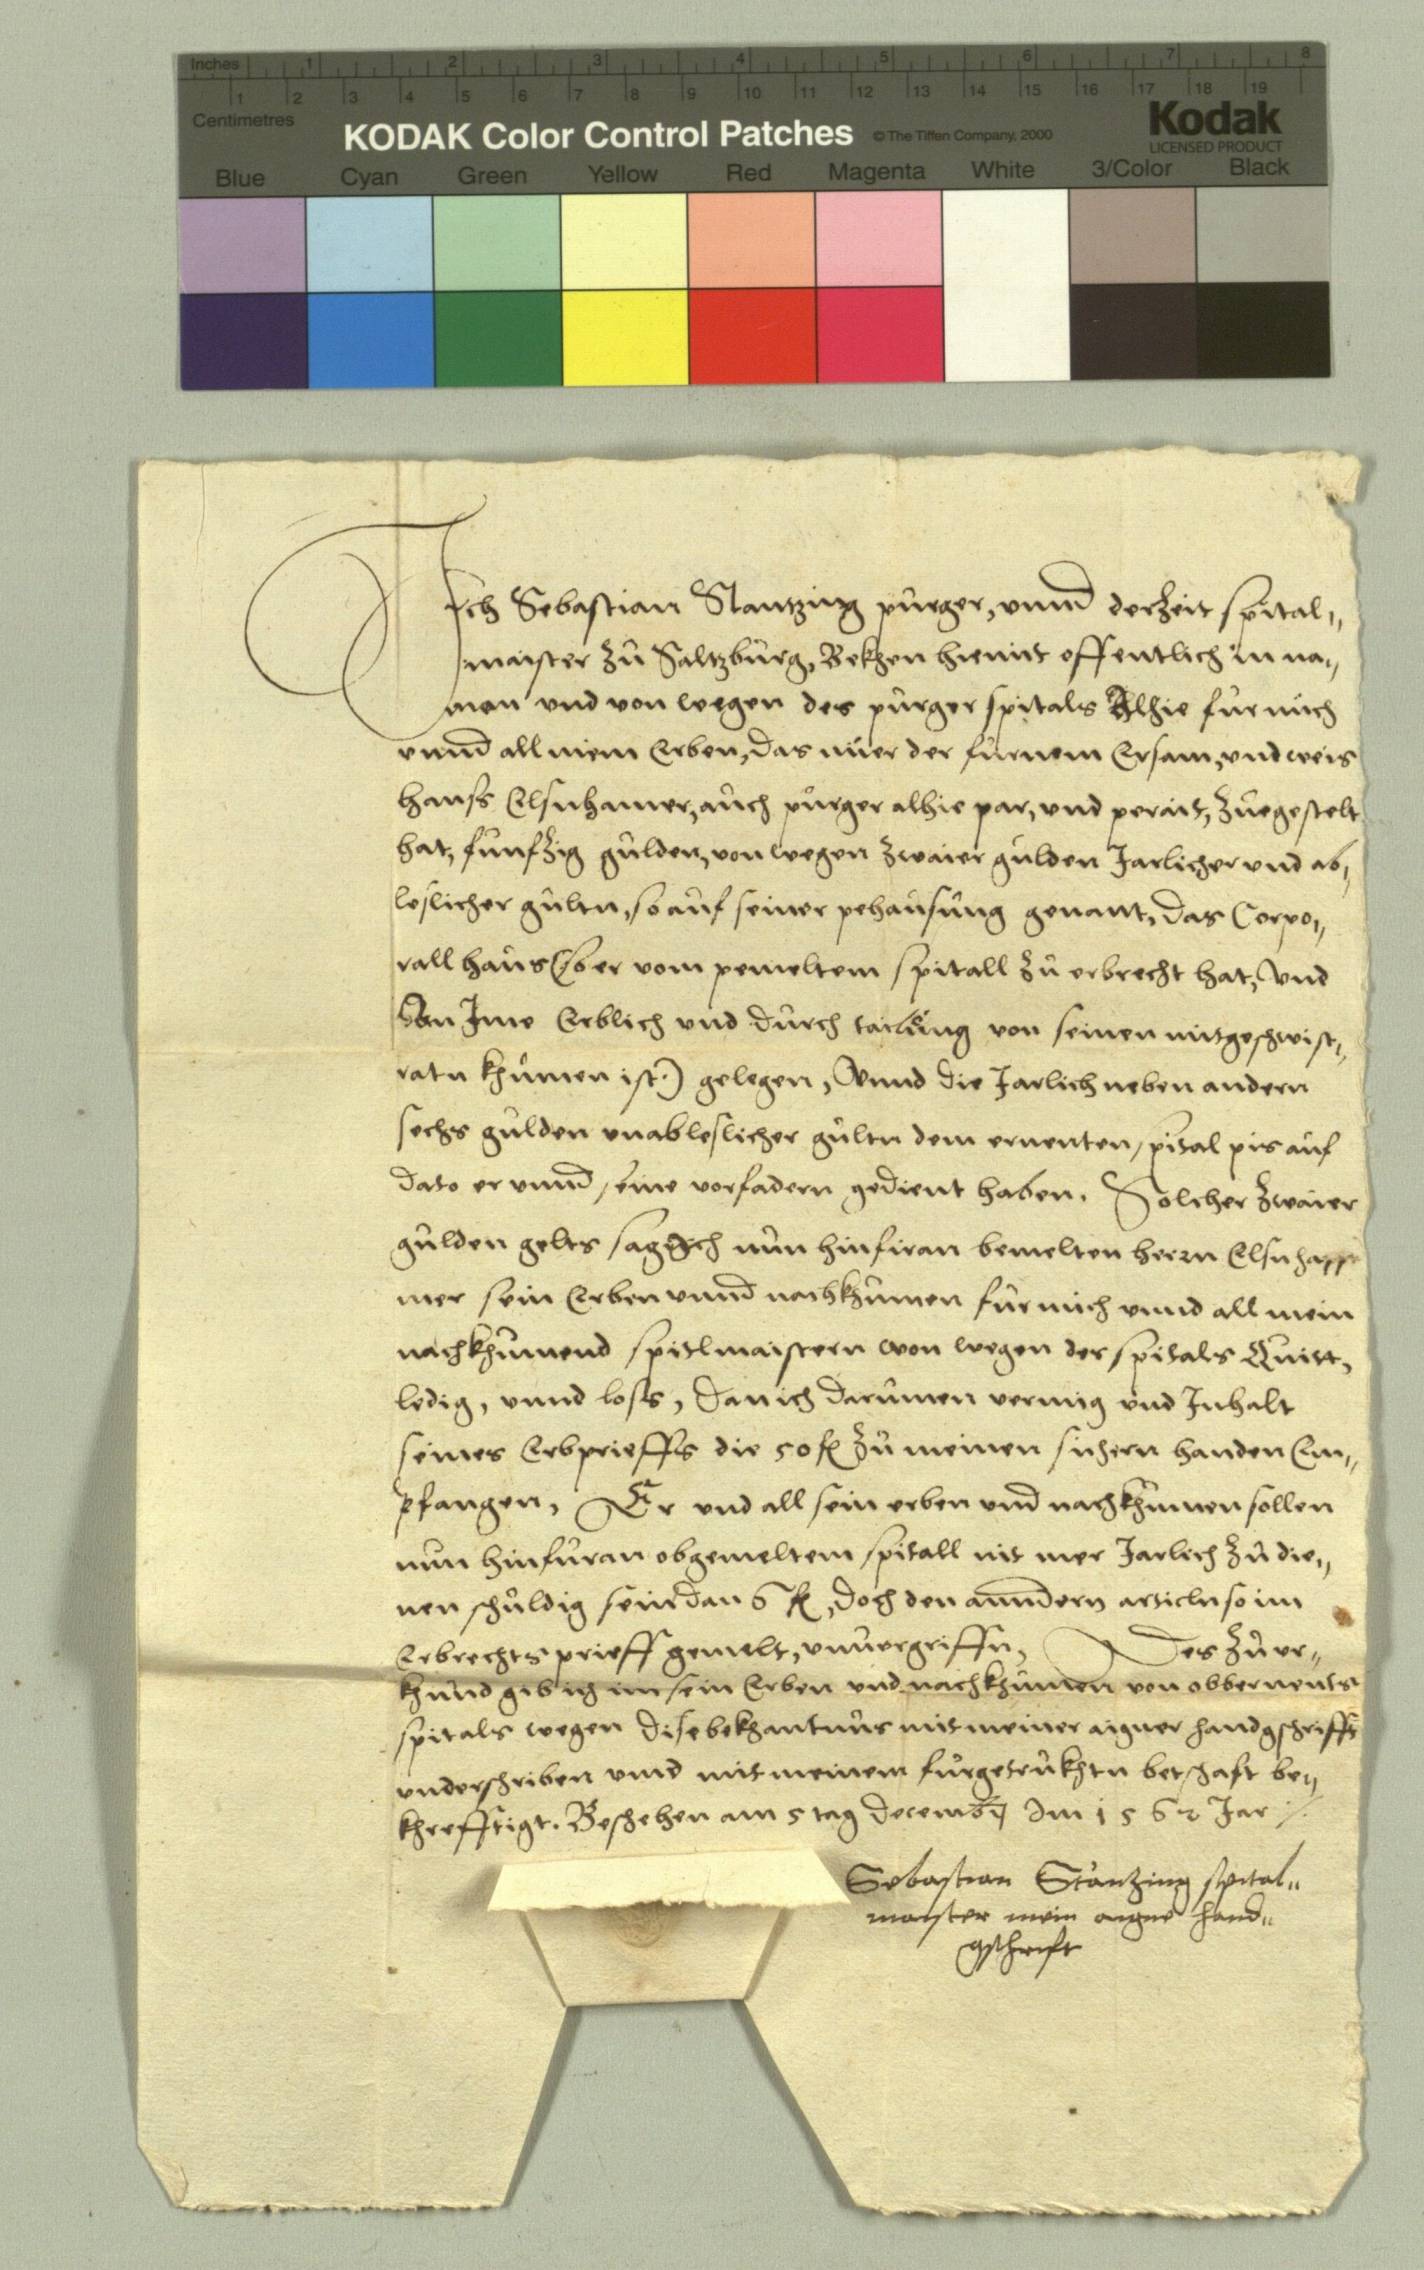 Inches 1 2 3 4 5 6 7 8
1 2 3 4 5 6 7 8 9 10 11 12 13 14 15 16 17 18 19
Centimetres
KODAK Color Control Patches © The Tiffen Company, 2000 Kodak
LICENSED PRODUCT
Blue Cyan Green Yellow Red Magenta White 3/Color Black
Ich Sebastian Stantzing pürger, unnd derzeit spital„
maister zů Saltzbůrg, Bekhen hiemit offentlich in na„
men und von wegen des pürger spitals Alhie für mich
unnd all mein Erben, das mier der fürnem Ersam, und weis
hanss Elsnhamer, aůch pürger alhie par, und perait, zůegestelt
hat, fůnfzig gůlden, von wegen zwaier gůlden Jarlicher und ab„
leslicher gůltn, so aůf seiner pehaůsůng genant, das Corpo„
rall haůs (so er vom pemeltem spitall zů erbrecht hat, und
An Ime Erblich und důrch tailůng von seinen mitgeschwist„
ratn khůmen ist) gelegen, Unnd die Jarlich neben andern
sechs gůlden unableslicher gůltn dem ernenten spital pis aůf
dato er unnd seine vorfadern gedient haben. Solcher zwaier
gůlden gelts sag Ich nůn hinfiran bemelten herrn Elsnha
mer sein Erben unnd nachkhůmen für mich unnd all mein
nachkhůmend spitlmaistern von wegen des spitals Qůitt,
ledig, unnd loss, dan ich darůmen vermig und Inhalt
seines Erbprieffs die 50 fl zů meinen sichern handen Em„
pfangen, Er und all sein erben und nachkhůmen sollen
nůn hinfůran obgemeltem spitall nit mer Jarlich zů die„
nen schůldig sein dan 6 fl, doch den anndern articln so im
Erbrechts prieff gemelt, unůergriffn, Des zů ur„
khůnd gib ich im sein Erben und nachkhůmen von obbernents
spitals wegen dise bekhantnůs mit meiner aigner handgschrifft
underschriben unnd mit meinem fůrgetrůkhtn betschaft be„
khrefftigt. Beschehen am 5 tag decembris Im 1562 Jar
Sebastian Stanzing spital„
maister mein aigne hand„
gschrift